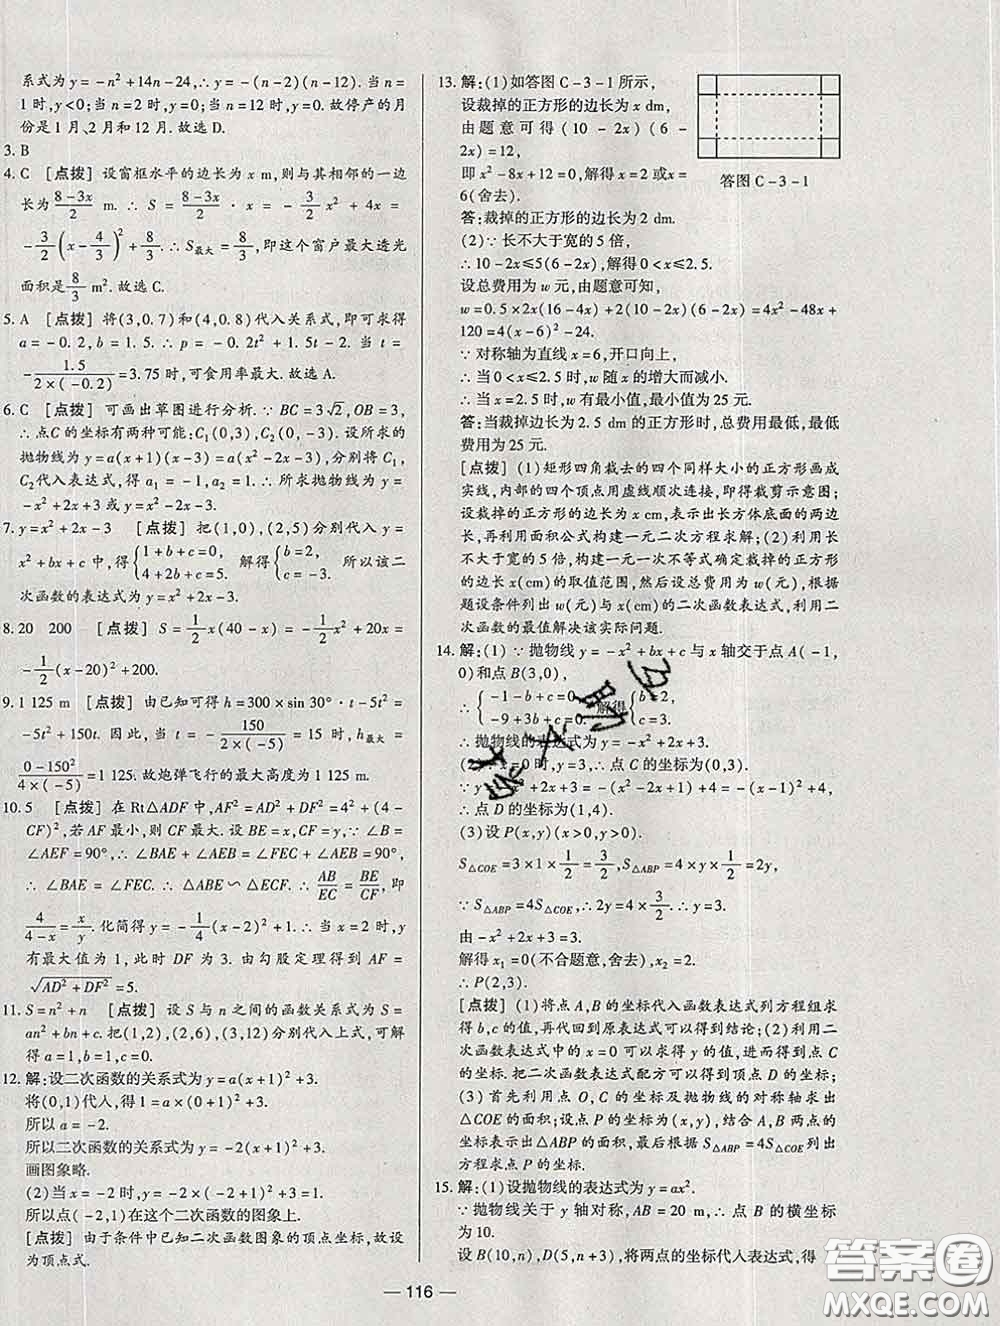 系式为 y=-n²+14n-24,∴ y=-(n-2)(n-12). 当 n=
1 时,y<0;当 n=2 时,y=0;当 n=12 时,y=0. 故停产的月
份是 1 月、2 月和 12 月. 故选 D.
3. B
4. C [点拨] 设窗框水平的边长为 x m,则与其相邻的一边
长为 (8-3x)/2 m. ∴ S = (8-3x)/2 · x = -3/2 x² + 4x =
-3/2 (x-4/3)² + 8/3. ∴ S最大 = 8/3,即这个窗户最大透光
面积是 8/3 m². 故选 C.
5. A [点拨] 将(3,0.7)和(4,0.8)代入关系式,即可求得
a=-0.2,b=1.5. ∴ p=-0.2t²+1.5t-2. ∴ 当 t=
-1.5/(2×(-0.2))=3.75 时,可食用率最大. 故选 A.
6. C [点拨] 可画出草图进行分析. ∵ BC=3√2,OB=3,
∴ 点 C 的坐标有两种可能:C₁(0,3),C₂(0,-3). 设所求的
抛物线为 y=a(x+1)(x-3)=a(x²-2x-3),分别将 C₁,
C₂代入表达式,得 a₁=-1,a₂=1. ∴ 所求抛物线为 y=
-x²+2x+3 或 y=x²-2x-3.
7. y=x²+2x-3 [点拨] 把(1,0),(2,5)分别代入 y=
x²+bx+c 中,得{1+b+c=0, 4+2b+c=5. 解得{b=2, c=-3. 所以该二
次函数的表达式为 y=x²+2x-3.
8. 20 200 [点拨] S=1/2 x(40-x)=-1/2 x²+20x=
-1/2 (x-20)²+200.
9. 1 125 m [点拨] 由已知可得 h=300×sin 30°·t-5t²=
-5t²+150t. 因此,当 t=-150/(2×(-5))=15 时,h最大=
(0-150²)/(4×(-5))=1 125. 故炮弹飞行的最大高度为 1 125 m.
10. 5 [点拨] 在 Rt△ADF 中,AF²=AD²+DF²=4²+(4-
CF)²,若 AF 最小,则 CF 最大. 设 BE=x,CF=y,∵ ∠B=
∠AEF=90°,∴ ∠BAE+∠AEB=∠FEC+∠AEB=90°.
∴ ∠BAE=∠FEC. ∴ △ABE∽△ECF. ∴ AB/EC=BE/CF,即
4/(4-x)=x/y. 化简得 y=-1/4 (x-2)²+1. ∴ 当 x=2 时,y
有最大值为 1,此时 DF 为 3. 由勾股定理得到 AF=
√(AD²+DF²)=5.
11. S=n²+n [点拨] 设 S 与 n 之间的函数关系式为 S=
an²+bn+c. 把(1,2),(2,6),(3,12)分别代入上式,可解
得 a=1,b=1,c=0.
12. 解:设二次函数的关系式为 y=a(x+1)²+3.
将(0,1)代人,得 1=a×(0+1)²+3.
所以 a=-2.
所以二次函数的关系式为 y=-2(x+1)²+3.
画图象略.
(2)当 x=-2 时,y=-2×(-2+1)²+3=1.
所以点(-2,1)在这个二次函数的图象上.
[点拨] 由于条件中已知二次函数图象的顶点坐标,故设
为顶点式.
13. 解:(1)如答图 C-3-1 所示,
设裁掉的正方形的边长为 x dm,
由题意可得(10-2x)(6-
2x)=12,
即 x²-8x+12=0,解得 x=2 或 x=
6(舍去).
答图 C-3-1
答:裁掉的正方形的边长为 2 dm.
(2)∵ 长不大于宽的 5 倍,
∴ 10-2x≤5(6-2x),解得 0<x≤2.5.
设总费用为 w 元,由题意可知,
w=0.5×2x(16-4x)+2(10-2x)(6-2x)=4x²-48x+
120=4(x-6)²-24.
∵ 对称轴为直线 x=6,开口向上,
∴ 当 0<x≤2.5 时,w 随 x 的增大而减小.
∴ 当 x=2.5 时,w 有最小值,最小值为 25 元.
答:当裁掉边长为 2.5 dm 的正方形时,总费用最低,最低
费用为 25 元.
[点拨] (1)矩形四角裁去的四个同样大小的正方形画成
实线,内部的四个顶点用虚线顺次连接,即得裁剪示意图;
设裁掉的正方形的边长为 x cm,表示出长方体底面的两边
长,再利用面积公式构建一元二次方程求解;(2)利用长
不大于宽的 5 倍,构建一元一次不等式确定裁掉的正方形
的边长 x(cm)的取值范围,然后设总费用为 w(元),根据
题设条件列出 w(元)与 x(cm)的二次函数表达式,利用二
次函数的最值解决该实际问题.
14. 解:(1)∵ 抛物线 y=-x²+bx+c 与 x 轴交于点 A(-1,
0)和点 B(3,0),
∴ {-1-b+c=0, -9+3b+c=0. 解得{b=2, c=3.
∴ 抛物线的表达式为 y=-x²+2x+3.
x=0时,y=3,∴ 点 C 的坐标为(0,3).
+2x+3=-(x²-2x+1-1)+3=-(x-1)²+4,
∴ 点 D 的坐标为(1,4).
(3)设 P(x,y)(x>0,y>0).
S△COE=3×1×1/2=3/2,S△ABP=4×y×1/2=2y,
∵ S△ABP=4S△COE,∴ 2y=4×3/2. ∴ y=3.
由-x²+2x+3=3.
解得 x₁=0(不合题意,舍去),x₂=2.
∴ P(2,3).
[点拨] (1)将点 A,B 的坐标代入函数表达式列方程组求
得 b,c 的值,再代回到原表达式可以得到结论;(2)利用二
次函数表达式中的 x=0 可以求得 y 的值,进而得到点 C
的坐标. 把二次函数表达式配方可以得到顶点 D 的坐标;
(3)首先利用点 C 的坐标及抛物线的对称轴求出
△COE 的面积;设点 P 的坐标为(x,y),结合 A,B 两点的
坐标表示出△ABP 的面积,最后根据 S△ABP=4S△COE列出
方程求点 P 的坐标.
15. 解:(1)设抛物线的表达式为 y=ax².
∵ 抛物线关于 y 轴对称,AB=20 m,∴ 点 B 的横坐标
为 10.
设 B(10,n),D(5,n+3),将两点的坐标代人表达式,得
— 116 —
答案圈
MXQE.COM